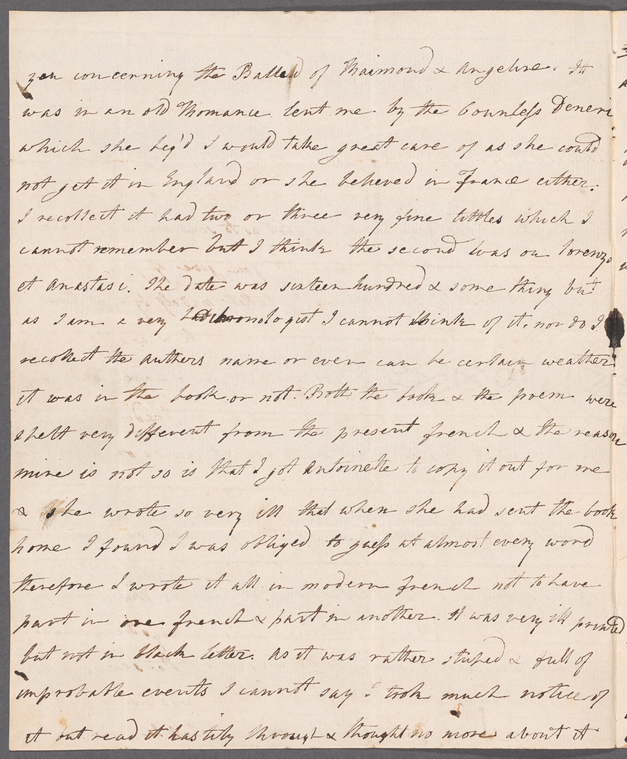 you concerning the Ballad of Raimond & Angeline. It
was in an old Romance lent me by the Countess Deneri
which she beg'd I would take great care of as she could
not get it in England or she believed in France either.
I recollect it had two or three very fine tittles which I
cannot remember but I think the second was ou Lorenzo
et Anastasi. The date was sixteen hundred & some thing but
as I am a very bad Chronologist I cannot think of it, nor do I
recollect the authors name or even can be certain weather
it was in the book or not. Both the book & the poem were
spelt very different from the present french & the reason
mine is not so is that I got Antoinette to copy it out for me
& she wrote so very ill that when she had sent the book
home I found I was obliged to guess at almost every word
therefore I wrote it all in modern french not to have
part in one french & part in another. It was very ill printed
but not in black letter. As it was rather stuped & full of
improbable events I cannot say I took much notice of
it but read it hastily through & thought no more about it